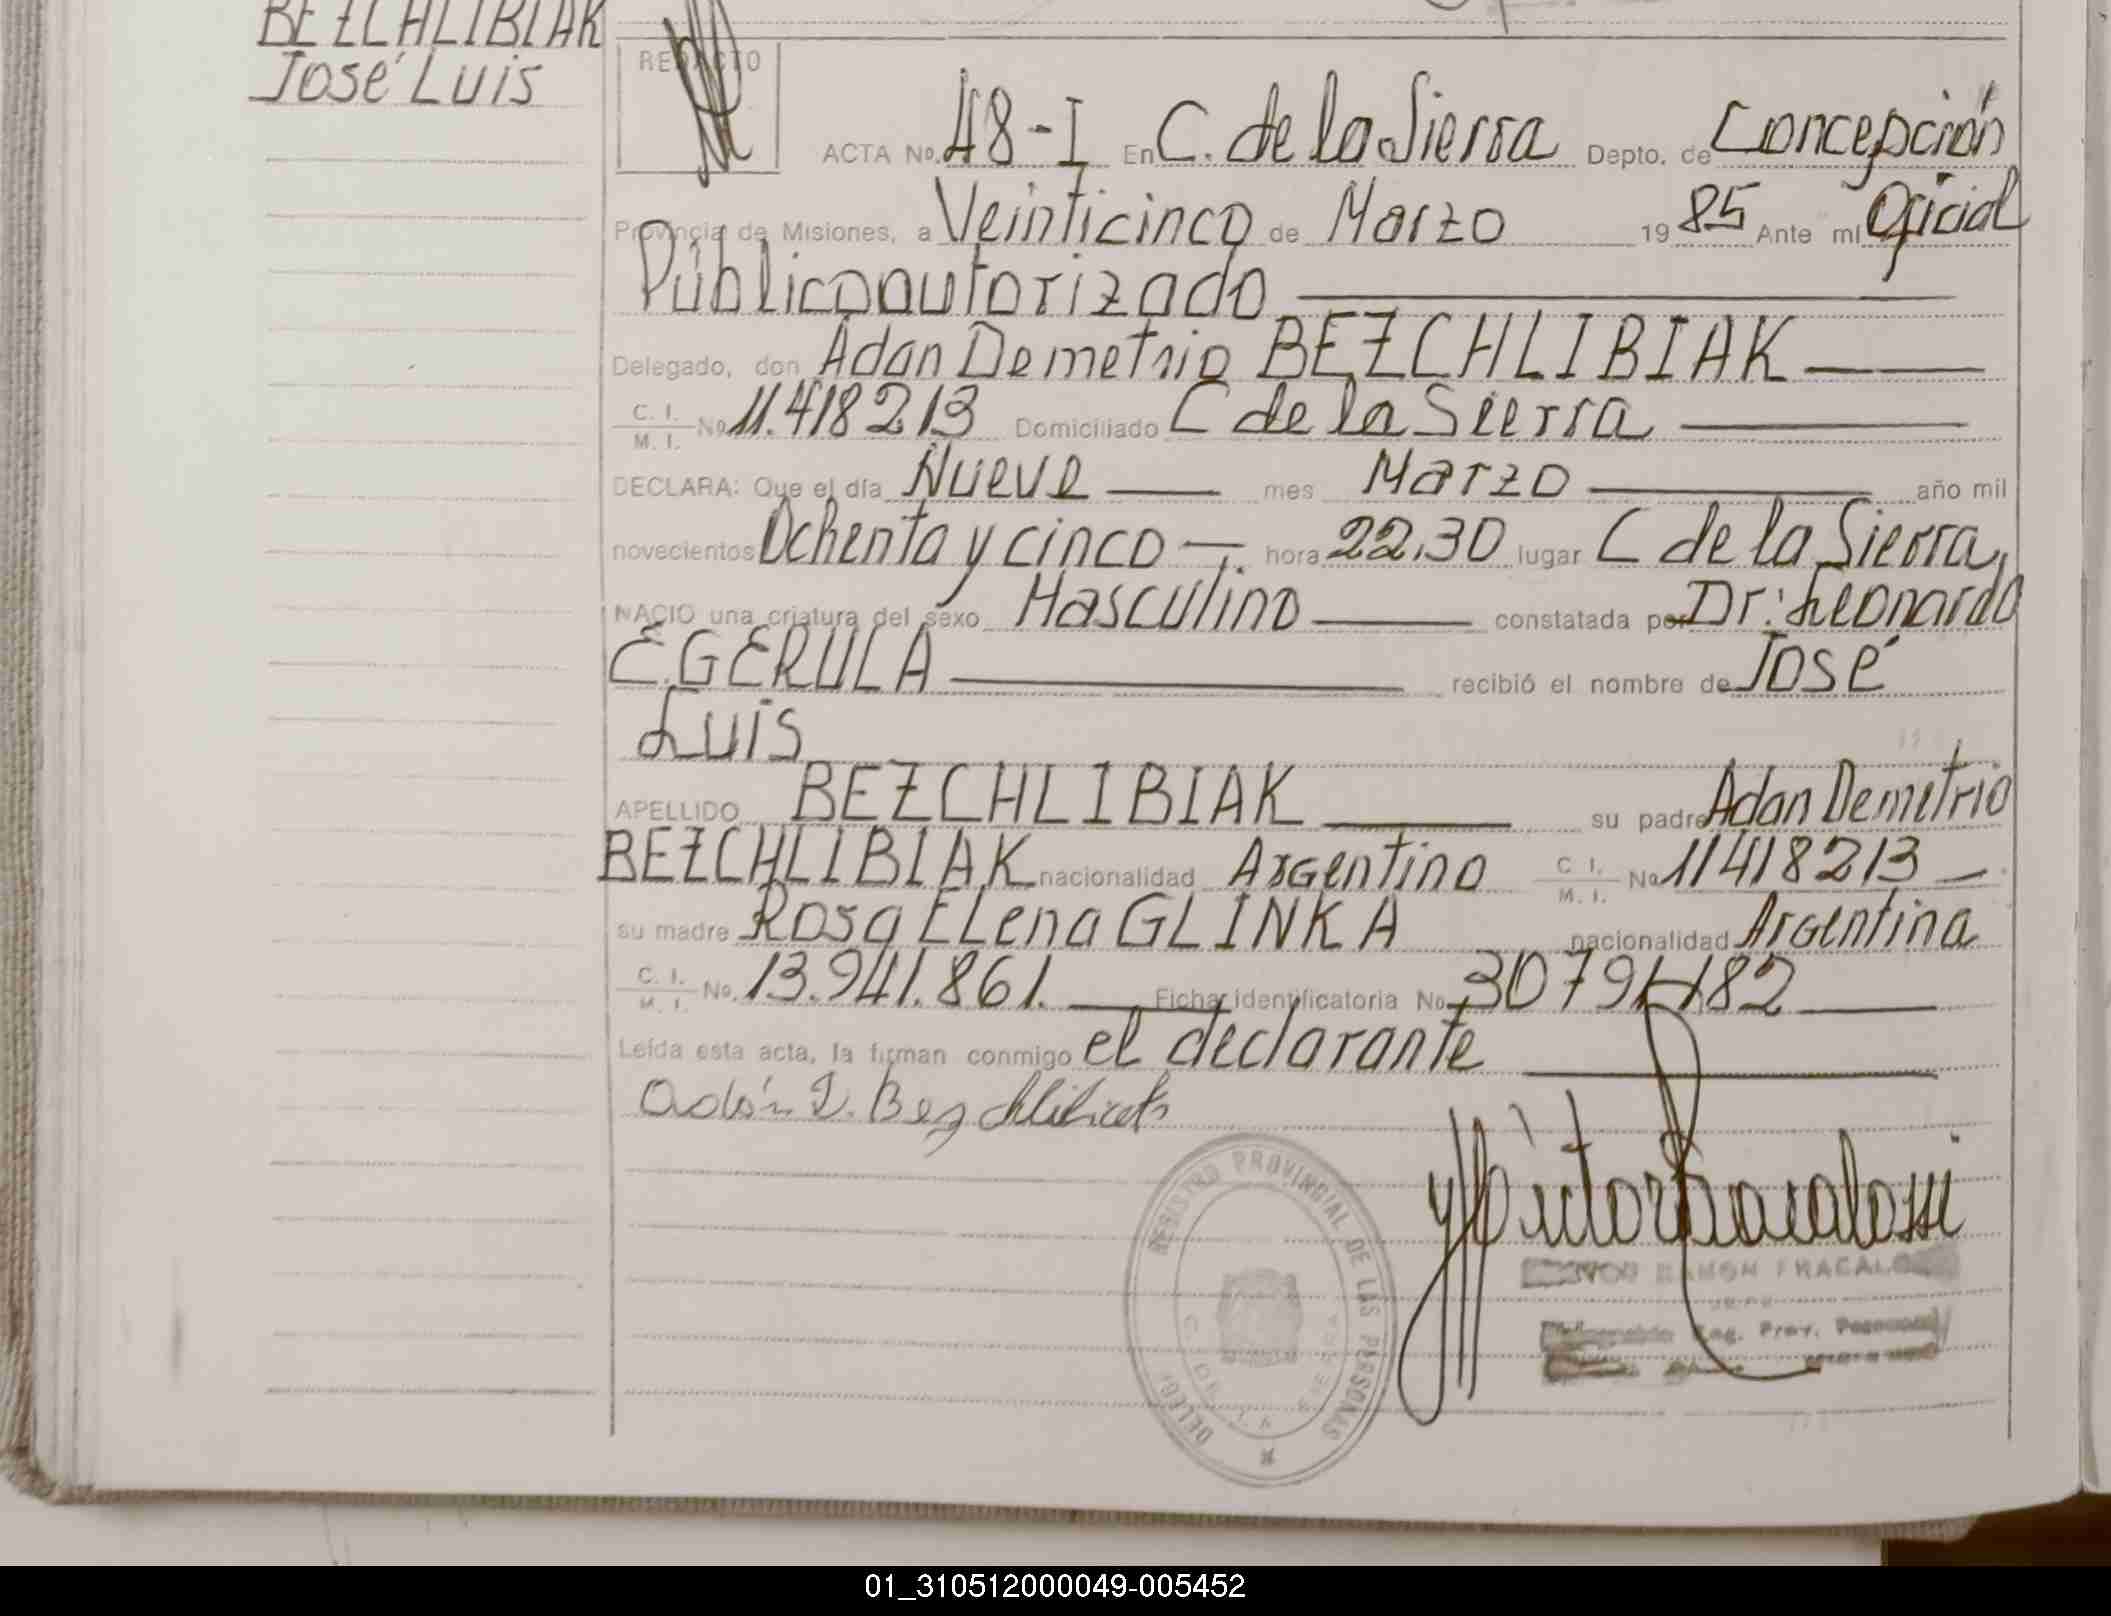 BEZCHLIBIAK
José Luis
REDACTO
ACTA No. 48-I En C. de la Sierra Depto. de Concepción
Provincia de Misiones, a Veinticinco de Marzo 1985 Ante mí Oficial
Público autorizado
Delegado, don Adan Demetrio BEZCHLIBIAK
C. I. / M. I. No 11.418213 Domiciliado C de la Sierra
DECLARA: Que el día Nueve mes Marzo año mil
novecientos Ochenta y cinco hora 22.30 lugar C de la Sierra,
NACIO una criatura del sexo Masculino constatada por Dr: Leonardo
E. GERULA recibió el nombre de José
Luis
APELLIDO BEZCHLIBIAK su padre Adan Demetrio
BEZCHLIBIAK nacionalidad Argentino C. I. / M. I. No 11418213
su madre Rosa Elena GLINKA nacionalidad Argentina
C. I. / M. I. No. 13.941.861. Ficha identificatoria No 30791182
Leída esta acta, la firman conmigo el declarante
Adán D. Bezchlibiak
REGISTRO PROVINCIAL DE LAS PERSONAS
DELEG.
C. DE LA SIERRA
Victor Fracalossi
RAMON FRACALO
Reg. Prov. Personas
01_310512000049-005452